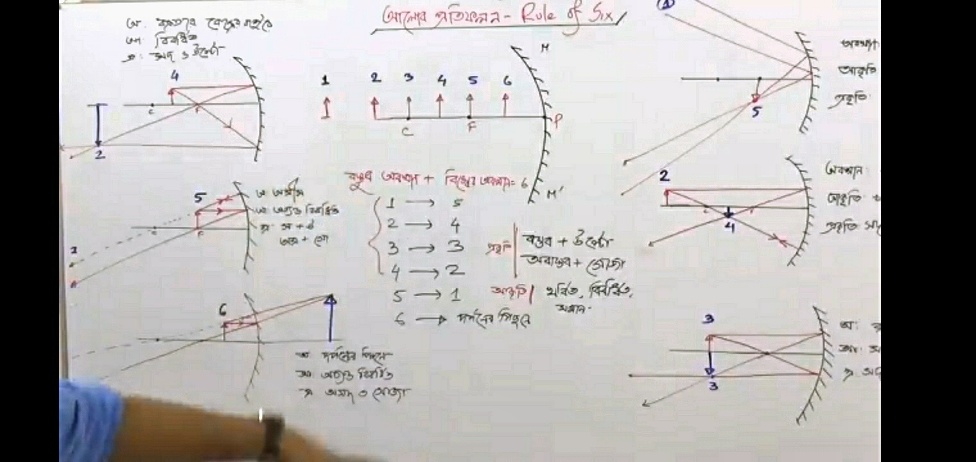 আলোর প্রতিফলন - Rule of Six
অ: বক্রতার কেন্দ্রের বাইরে
আ: বিবর্ধিত
প্র: সদ ও উল্টো
4
C F
2
1 2 3 4 5 6
C F P
M
M'
বস্তুর অবস্থান + বিম্বের অবস্থান = 6
1 → 5
2 → 4
3 → 3
4 → 2
5 → 1
6 → দর্পনের পিছনে
প্রকৃতি বাস্তব + উল্টো
অবাস্তব + সোজা
আকৃতি খর্বিত, বিবর্ধিত,
5
অ: অসীম
আ: অত্যন্ত বিবর্ধিত
C F
1
6
অ: দর্পনের পিছনে
আ: অত্যন্ত বিবর্ধিত
প্র: অসদ ও সোজা
5
অবস্থান
আকৃতি
প্রকৃতি:
2
4
অবস্থান:
আকৃতি
প্রকৃতি
3
3
অ:
আ:
প্র: